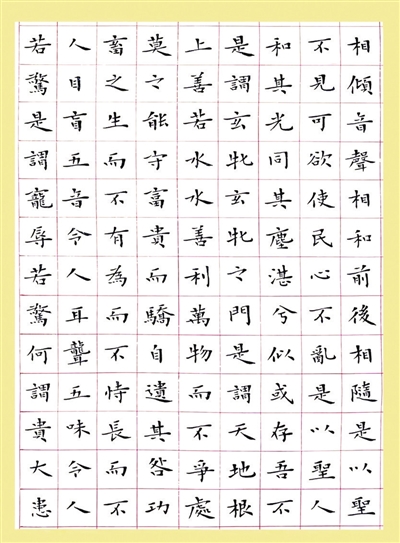 相傾音聲相和前後相隨是以聖
不見可欲使民心不亂是以聖人
和其光同其塵湛兮似或存吾不
是謂玄牝玄牝之門是謂天地根
上善若水水善利萬物而不爭處
莫之能守富貴而驕自遺其咎功
畜之生而不有為而不恃長而不
人目盲五音令人耳聾五味令人
若驚是謂寵辱若驚何謂貴大患